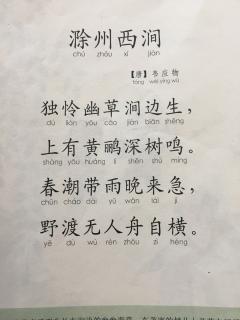 滁州西涧
chú zhōu xī jiàn
【唐】韦应物
táng wéi yìng wù
独怜幽草涧边生，
dú lián yōu cǎo jiàn biān shēng
上有黄鹂深树鸣。
shàng yǒu huáng lí shēn shù míng
春潮带雨晚来急，
chūn cháo dài yǔ wǎn lái jí
野渡无人舟自横。
yě dù wú rén zhōu zì héng